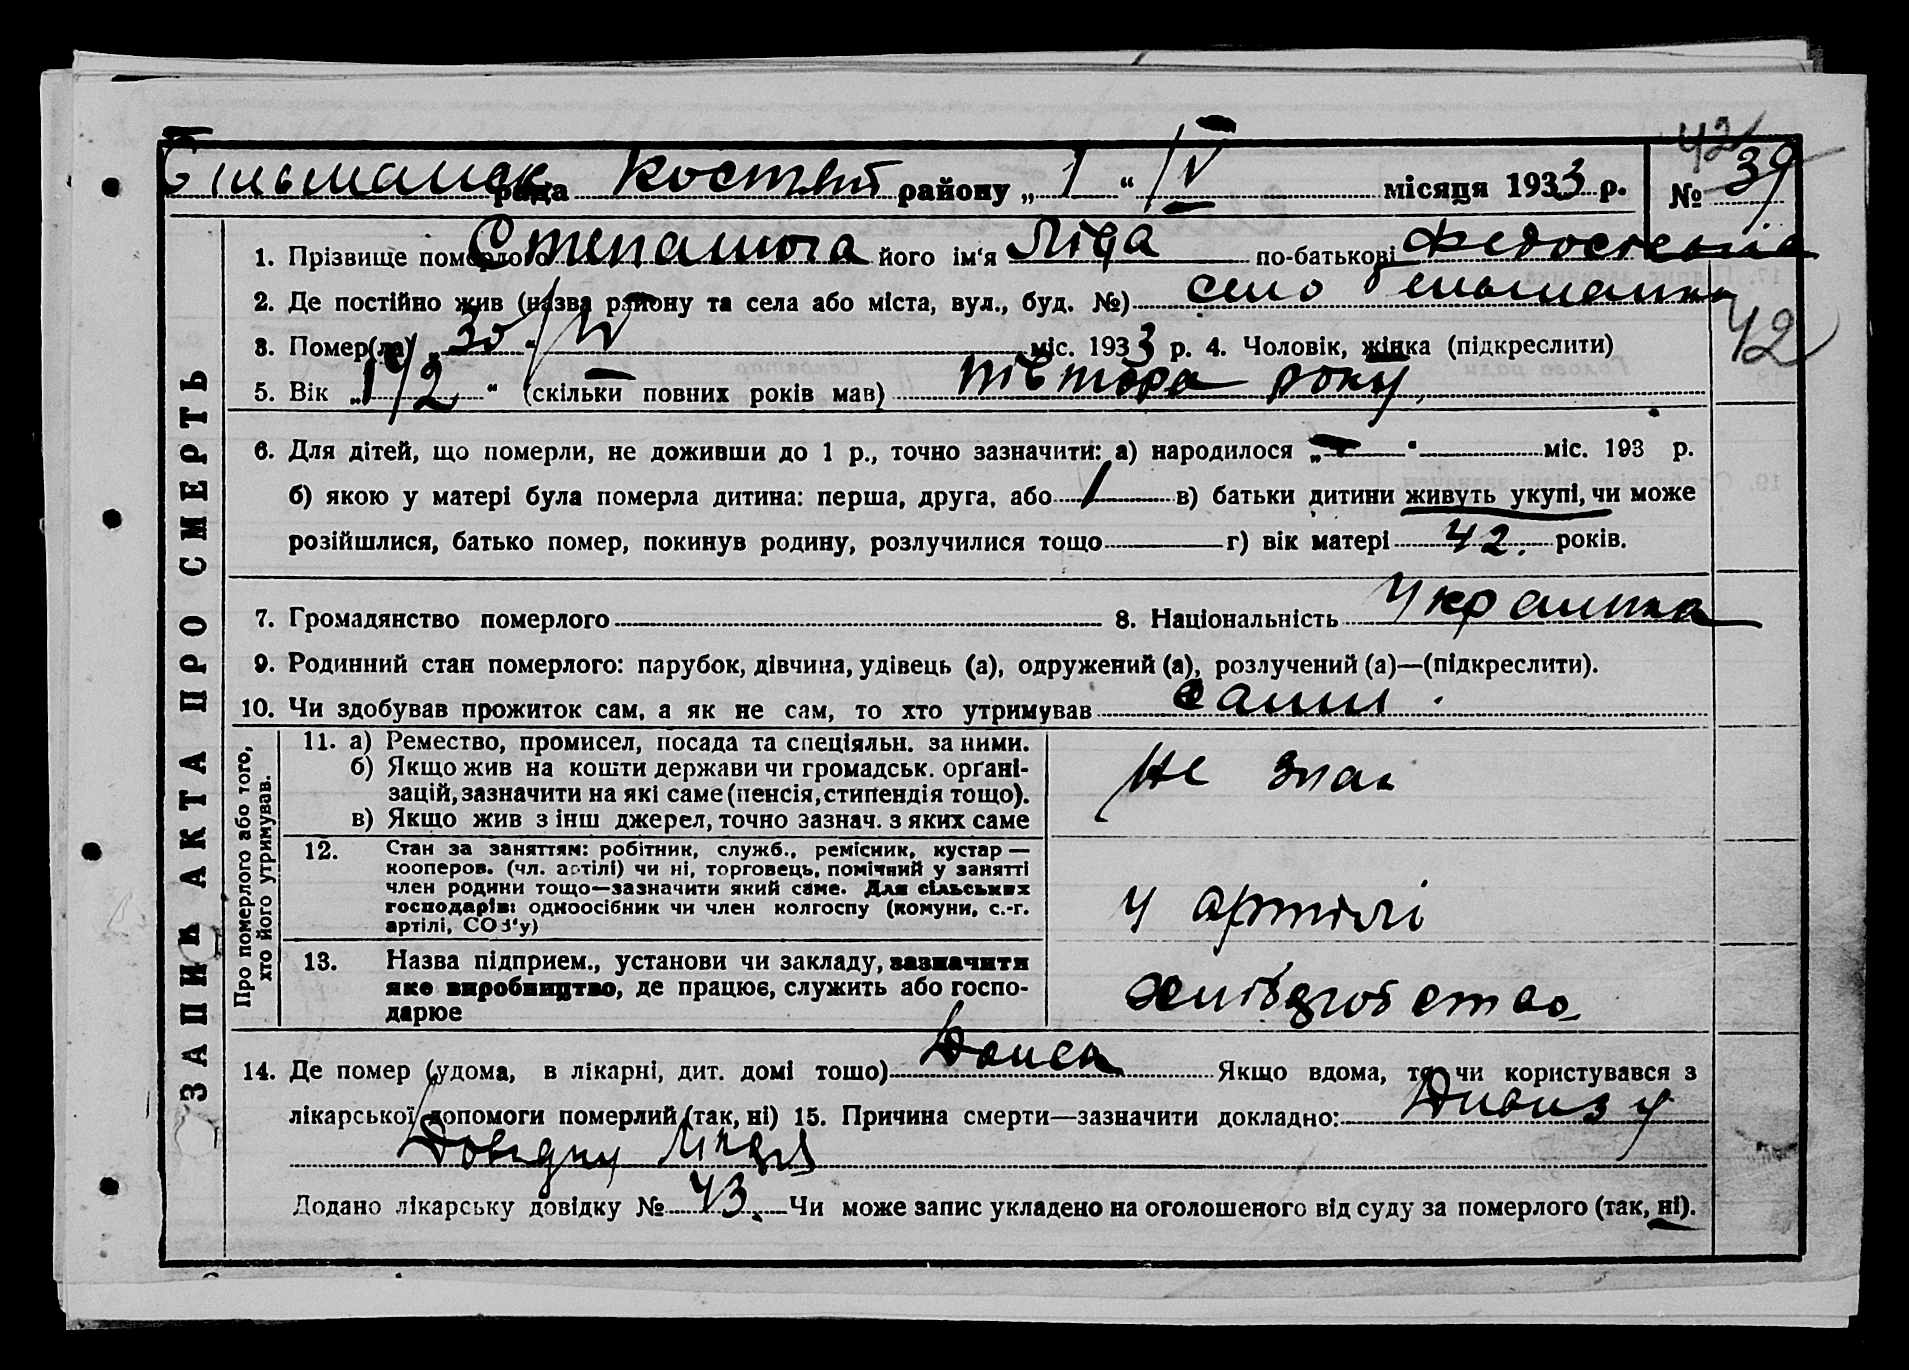 рада Кост район у „ 1 “ / V місяця 1933 р. № 39 42
ЗАПИС АКТА ПРО СМЕРТЬ
1. Прізвище померлого Степанюга його ім'я Ліда по-батькові
2. Де постійно жив (назва району та села або міста, вул., буд. №) село
3. Помер(ла) „ 30 “ / IV міс. 1933 р. 4. Чоловік, жінка (підкреслити) 42
5. Вік „ 1 1/2 “ (скільки повних років мав) півтора року
6. Для дітей, що померли, не доживши до 1 р., точно зазначити: а) народилося „ — “ міс. 193 р.
б) якою у матері була померла дитина: перша, друга, або / в) батьки дитини живуть укупі, чи може
розійшлися, батько помер, покинув родину, розлучилися тощо г) вік матері 42. років.
7. Громадянство померлого 8. Національність Украинка
9. Родинний стан померлого: парубок, дівчина, удівець (а), одружений (а), розлучений (а)—(підкреслити).
10. Чи здобував прожиток сам, а як не сам, то хто утримував
Про померлого або того, хто його утримував.
11. а) Ремество, промисел, посада та спеціяльн. за ними.
б) Якщо жив на кошти держави чи громадськ. орґані-
зацій, зазначити на які саме (пенсія, стипендія тощо).
в) Якщо жив з інш джерел, точно зазнач. з яких саме
не знаю
12. Стан за заняттям: робітник, служб., ремісник, кустар —
кооперов. (чл. артілі) чи ні, торговець, помічний у занятті
член родини тощо—зазначити який саме. Для сільських
господарів: одноосібник чи член колгоспу (комуни, с.-г.
артілі, СОЗ'у)
у артілі
13. Назва підприєм., установи чи закладу, зазначити
яке виробництво, де працює, служить або госпо-
дарює
14. Де помер (удома, в лікарні, дит. домі тощо) Дома Якщо вдома, то чи користувався з
лікарської допомоги померлий (так, ні) 15. Причина смерти—зазначити докладно:
Додано лікарську довідку № 43. Чи може запис укладено на оголошеного від суду за померлого (так, ні).